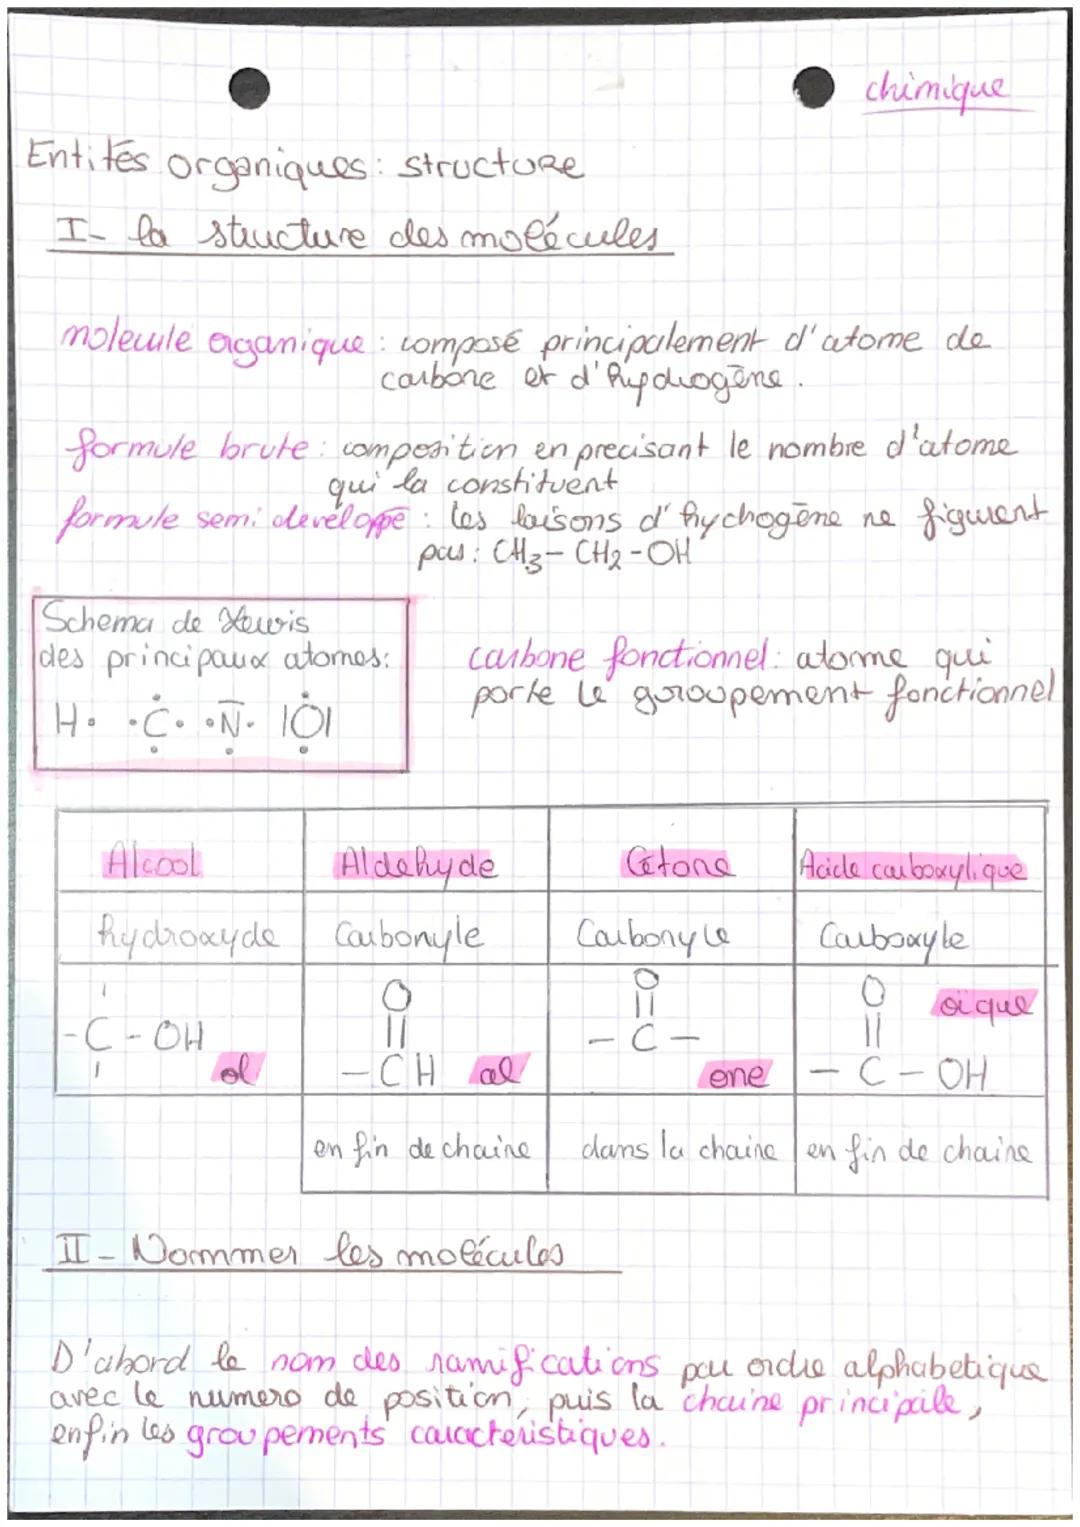 chimique
Entités organiques: structure
I- la stucture des molécules
molecule organique : composé principalement d'atome de
carbone et d'hydrogène.
formule brute : composition en precisant le nombre d'atome
qui la constituent
formule semi developpé : les laisons d'hydrogène ne figurent
pas : CH3- CH2 -OH
Schema de Lewis
des principaux atomes:
H• •C• •N• |O|
carbone fonctionnel: atome qui
porte le groupement fonctionnel
Alcool Aldehyde Cétone Acide carboxylique
hydroxyde Carbonyle Carbonyle Carboxyle
O O O oïque
-C-OH || - C - ||
ol - CH al one - C - OH
en fin de chaine dans la chaine en fin de chaine
II- Nommer les molécules
D'abord le nom des ramifications par ordre alphabetique
avec le numero de position, puis la chaine principale,
enfin les groupements caractéristiques.